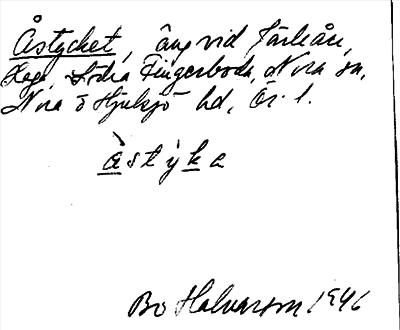 Åstycket, äng vid Järleån,
Äga, Södra Fingerboda, Nora sn,
Nora o Hjulsjö hd, Ör. l.
åstýka
Bo Halvarson 1946